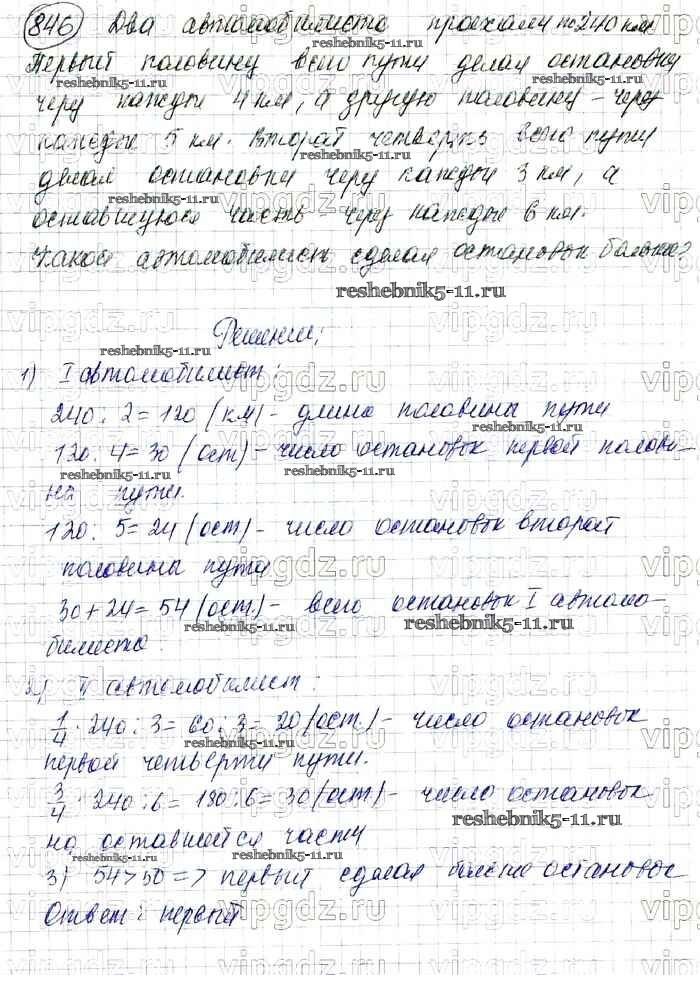 846 Два автомобилиста проехали по 240 км.
Первый половину всего пути делал остановку
через каждые 4 км, а другую половину – через
каждые 5 км. Второй четверть всего пути
делал остановки через каждые 3 км, а
оставшуюся часть через каждые 6 км.
Какой автомобилист сделал остановок больше?
Решение:
1) I автомобилист:
240 : 2 = 120 (км) – длина половины пути
120 : 4 = 30 (ост) – число остановок первой полови-
ны пути.
120 : 5 = 24 (ост) – число остановок второй
половины пути
30 + 24 = 54 (ост.) – всего остановок I автомо-
билиста.
2) II автомобилист:
1/4 · 240 : 3 = 60 : 3 = 20 (ост.) – число остановок
первой четверти пути.
3/4 · 240 : 6 = 180 : 6 = 30 (ост) – число остановок
на оставшейся части
3) 54 > 50 => первый сделал больше остановок
Ответ: первый
reshebnik5-11.ru
vipgdz.ru